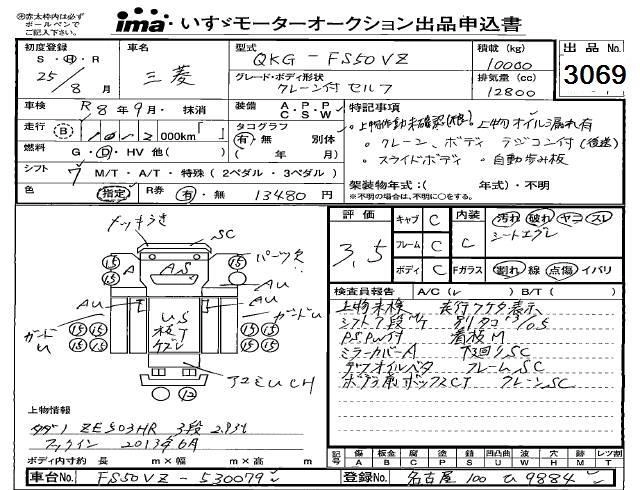 ㊟赤太枠内は必ず
ボールペンで
ご記入下さい。
ima いすゞモーターオークション出品申込書
初度登録
S・H・R
25/8月
車名
三菱
型式
QKG-FS50VZ
グレード・ボディ形状
クレーン付 セルフ
積載 (kg)
10000
排気量 (cc)
12800
出品No.
3069
車検 R8年9月・抹消
装備 A.P.P C S W
走行 B 000km
タコグラフ 有・無 別体
( 年 月)
燃料 G・D・HV 他( )
シフト 7 M/T・A/T・特殊 (2ペダル・3ペダル)
色 指定 R券 有・無 13480円
特記事項
・上物オイル漏れ有
・クレーン、ボディ ラジコン付(後送)
・スライドボディ ・自動歩み板
架装物年式:( 年式)・不明
※不明の場合は、不明に○をする。
評価 3.5
キャブ C
フレーム C
ボディ C
内装 C
Fガラス
汚れ 破れ ヤコゲ スレ
シートエグレ
割れ 線 点傷 イバリ
検査員報告 A/C(レ ) B/T( )
上物未検
シフト7段M/T
P.S.P.W付 看板M
ミラーカバーA 下回りSC
デフオイルベタ フレームSC
クレーンSC
SC
パーツ欠
A
AS
AU
AU
ガードU
ガードU
US
15 15 15 15 15 15
12
上物情報
タダノ ZE503HR 3段 2.93t
2013年6月
ボディ内寸約 長 m×幅 m×高 m
記号
傷 A
板金 B
腐 C
塗 P
錆 S
凹凸曲 U
波 W
穴 H
跡 M
レンズ割 T
車台No. FS50VZ-530079
登録No. 名古屋 100 ひ 9884